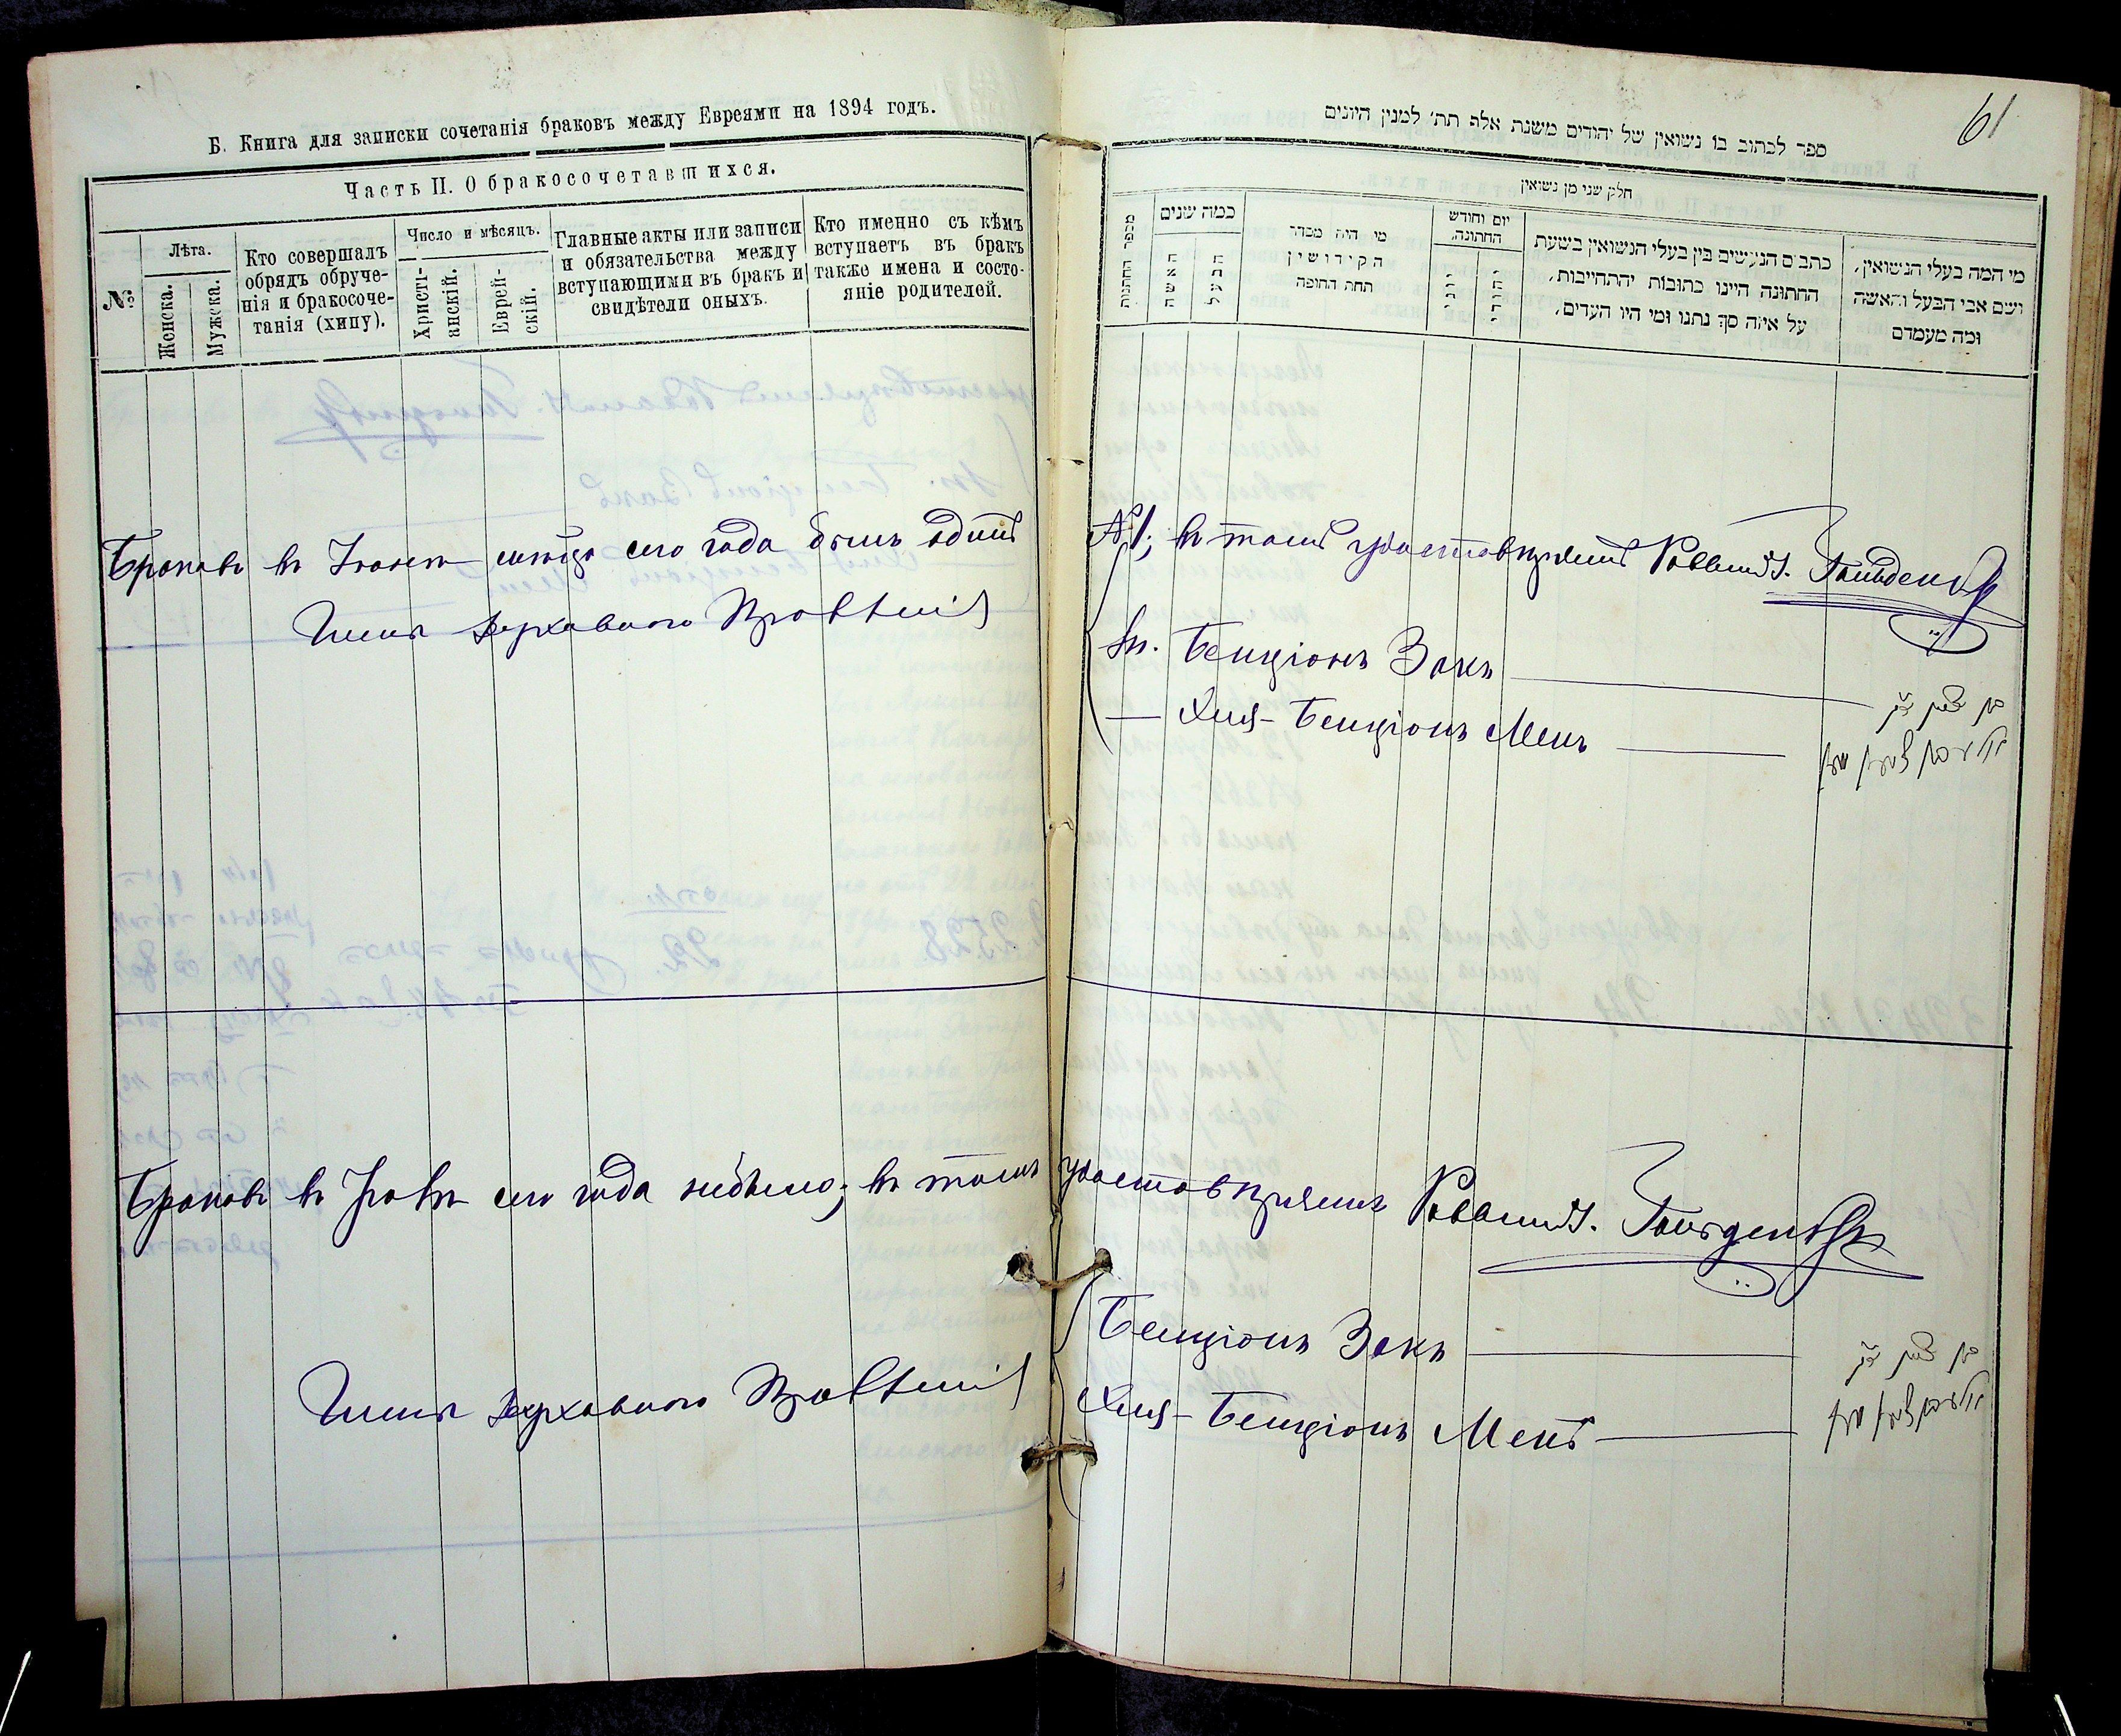 Б. Книга для записки сочетанія браковъ между Евреями на 1894 годъ.
Часть II. О бракосочетавшихся.
№
Лѣта.
Женска.
Мужска.
Кто совершалъ
обрядъ обруче-
нія и бракосоче-
танія (хипу).
Число и мѣсяцъ.
Христі-
анскій.
Еврей-
скій.
Главные акты или записи
и обязательства между
вступающими въ бракъ и
свидѣтели оныхъ.
Кто именно съ кѣмъ
вступаетъ въ бракъ
также имена и состо-
яніе родителей.
61
ספר לכתוב בו נשואין של יהודים משנת אלף תת׳ למנין היונים
חלק שני מן נשואין
מספר החתונות
כמה שנים
האשה
הבעל
מי היה מסדר
הקידושין
תחת החופה
יום וחודש
החתונה.
כתבים הנעשים בין בעלי הנשואין בשעת
החתונה היינו כתובות יהתחייבות,
על איזה סך נתנו ומי היו העדים,
מי המה בעלי הנשואין,
ושם אבי הבעל והאשה
ומה מעמדם
Браковъ въ Іюнѣ мѣсяцѣ сего года былъ одинъ № 1; въ томъ удостовѣряемъ Раввинъ. Гольденбер
Члены духовнаго Правленія
Бенціонъ Закъ
בן ציון זק
Хия-Бенціонъ Менъ
Браковъ въ Іюлѣ сего года небыло; въ томъ удостовѣряемъ Раввинъ. Гольденбер
Члены духовнаго Правленія
Бенціонъ Закъ
בן ציון זק
Хия-Бенціонъ Менъ